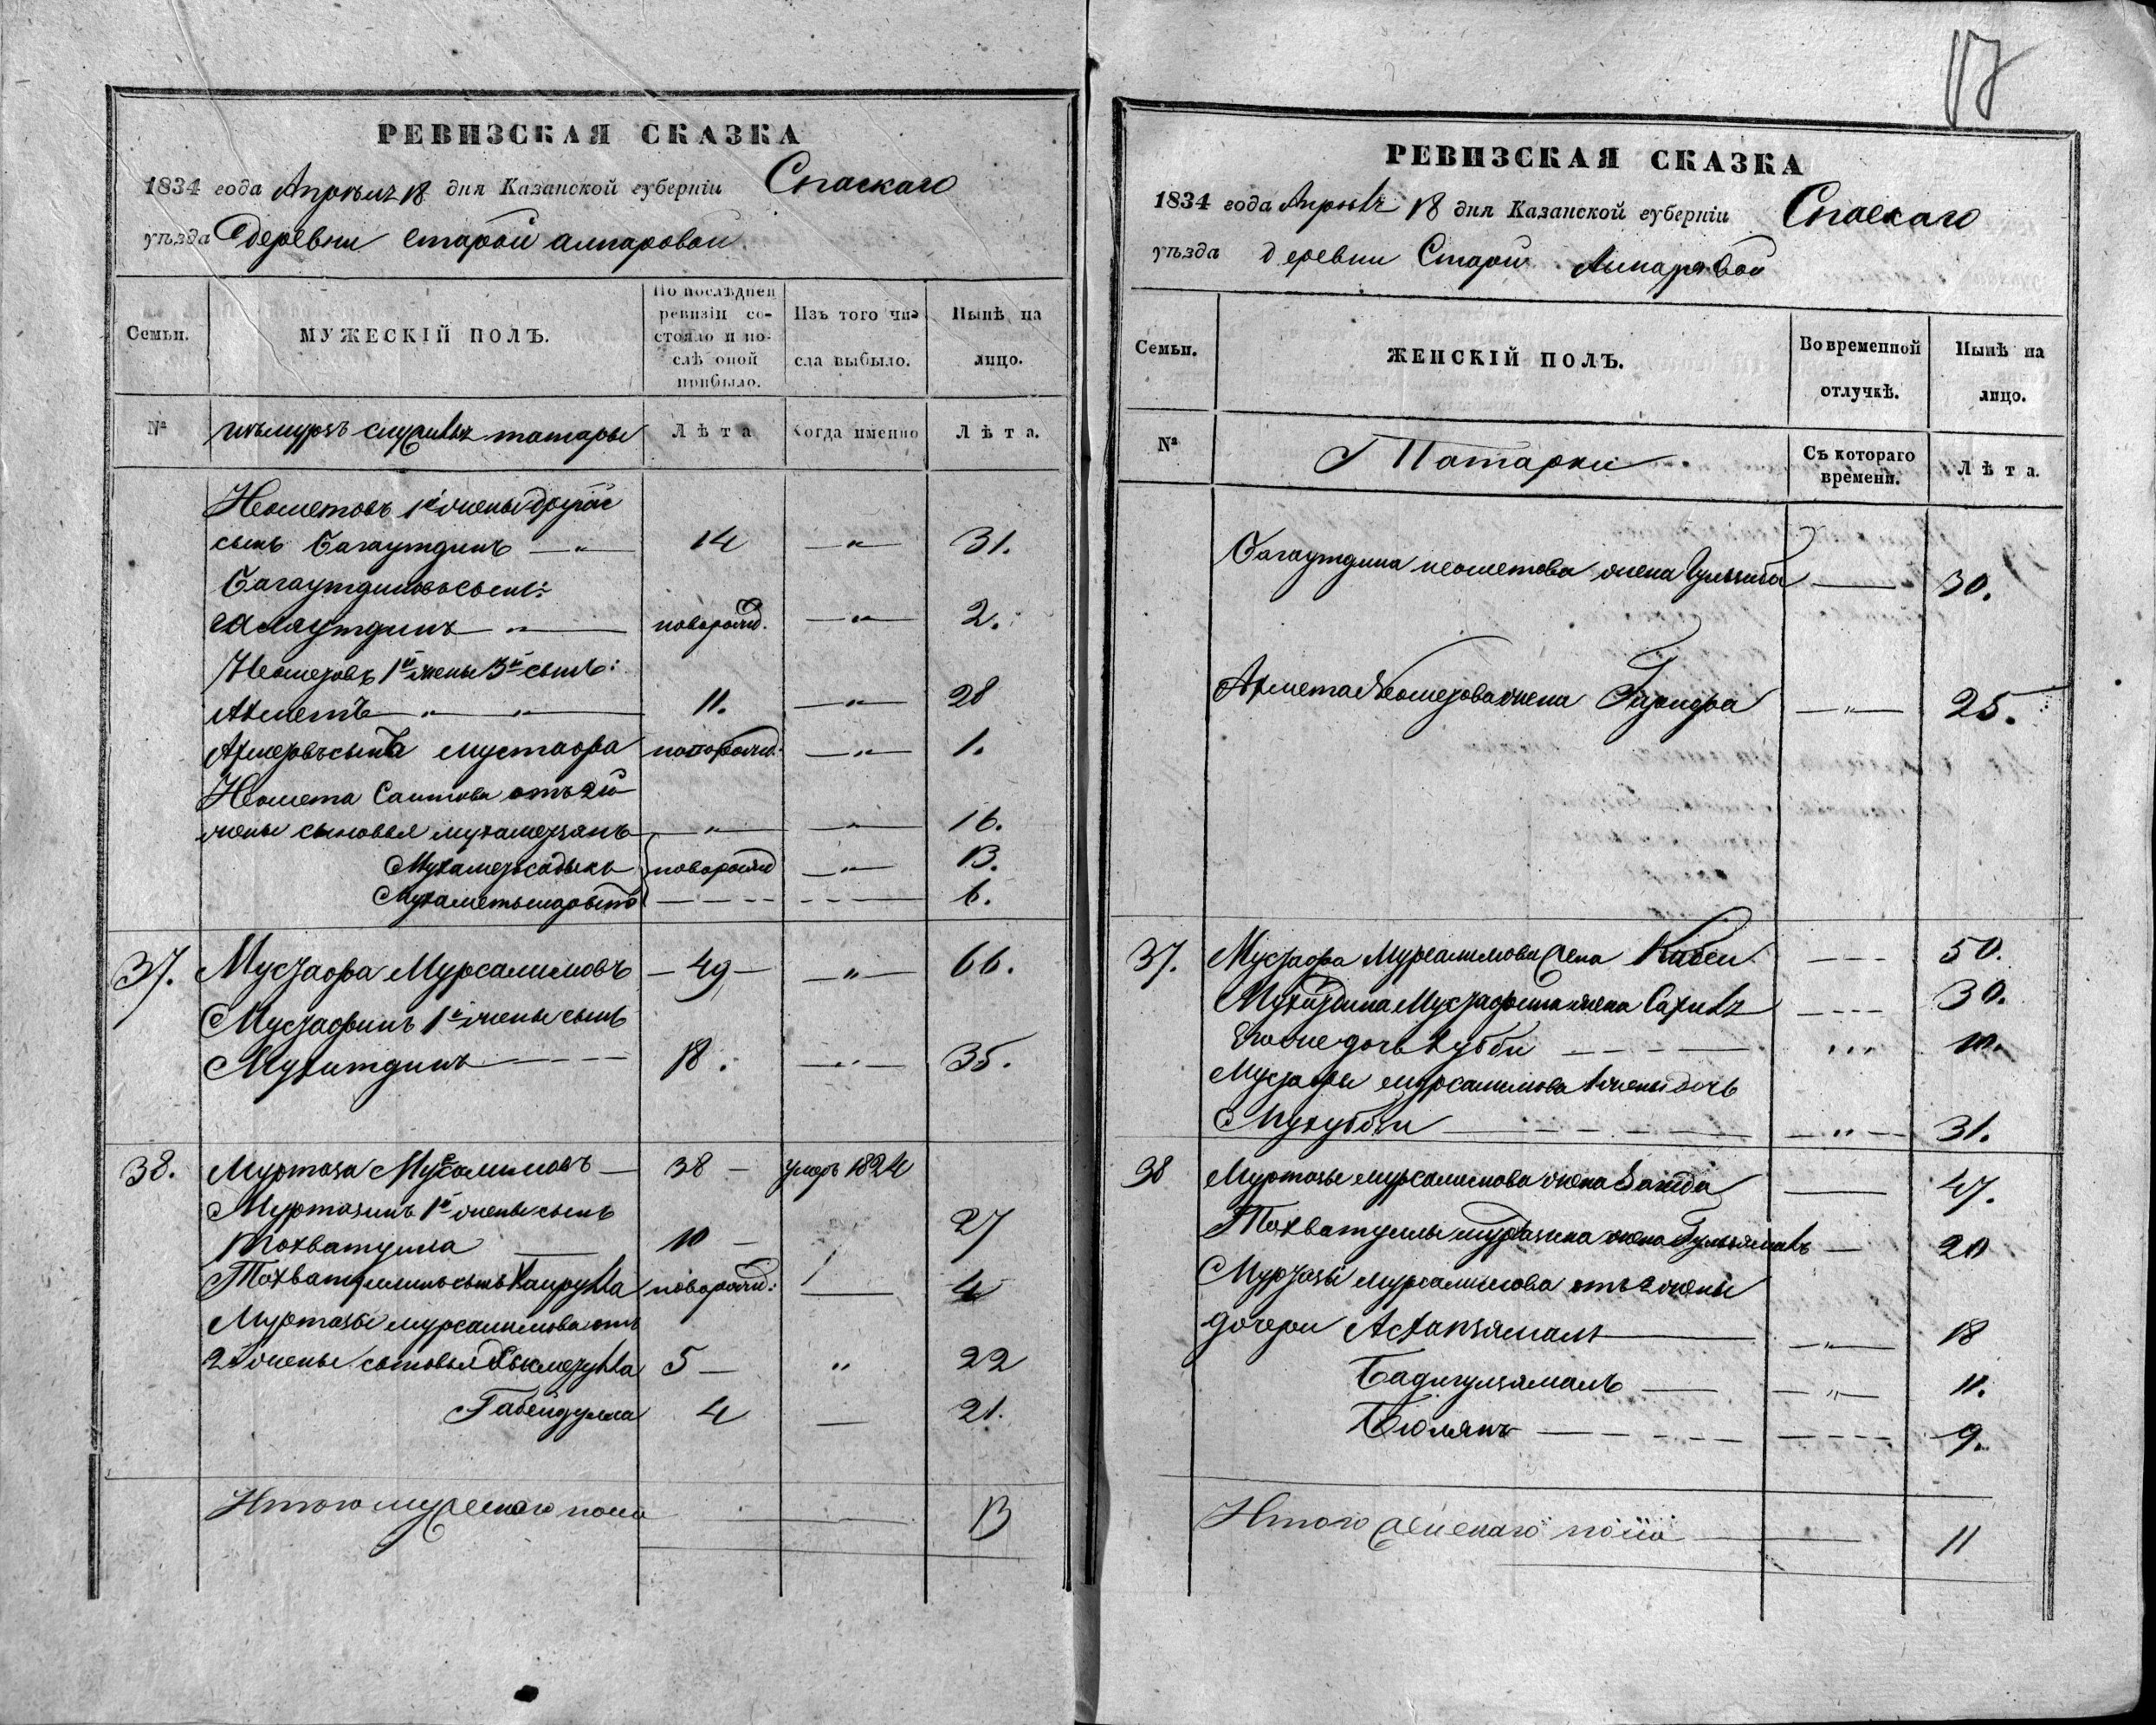 17
РЕВИЗСКАЯ СКАЗКА
1834 года Апреля 18 дня Казанской губерніи Спаскаго
уѣзда деревни старой алпаровой.
Семьи.
МУЖЕСКІЙ ПОЛЪ.
По послѣдней ревизіи состояло и послѣ оной прибыло.
Изъ того числа выбыло.
Нынѣ на лицо.
№
служилыя татары
Лѣта
Когда именно
Лѣта.
Неометовъ 1й жены другой
сынъ Багаутдинъ — " — 14 — " — 31.
Багаутдиновъ сынъ:
Галяутдинъ — " — новорожд. — " — 2.
Неометовъ 1й жены 3й сынъ:
Ахметъ — " — " — 11. — " — 28
Ахметовъ сынъ мустафа новорожд. — " — 1.
Неомета Саитова отъ 2й
жены сыновья мухаметзянъ — " — " — 16.
Мухаметсадыкъ новорожд — " — 13.
Мухаметьшарыпъ — — — 6.
37. Мустафа Мурсалимовъ — 49 — " — 66.
Мустафинъ 1й жены сынъ
Мухитдинъ — 18. — " — 35.
38. Муртаза Мурсалимовъ — 38 — умеръ 1824
Муртазинъ 1й жены сынъ
Тохватулла — 10 — 27
Тохватуллинъ сынъ Хайрулла новорожд: — 4
Муртазы мурсалимова отъ
2й жены сыновья Хикметулла 5 — " 22
Габейдулла 4 — 21.
Итого мужескаго пола 13
РЕВИЗСКАЯ СКАЗКА
1834 года Апреля 18 дня Казанской губерніи Спаскаго
уѣзда деревни Старой Алпаровой
Семьи.
ЖЕНСКІЙ ПОЛЪ.
Во временной отлучкѣ.
Нынѣ на лицо.
№
Татарки
Съ котораго времени.
Лѣта.
Багаутдина неометова жена — 30.
Ахмета Неометова жена — " — 25.
37. Мустафы Мурсалимова жена — 50.
Мухитдина Мустафина жена — 30.
Его же дочь — 10.
Мустафы мурсалимова 1 жены дочь
— " — 31.
38 Муртазы мурсалимова жена Заида — 47.
Тохватуллы муртазина жена — 20
Муртазы мурсалимова отъ 2 жены
дочери — " — 18
Бадигулзямалъ — " — 11.
— 9.
Итого женскаго пола — 11